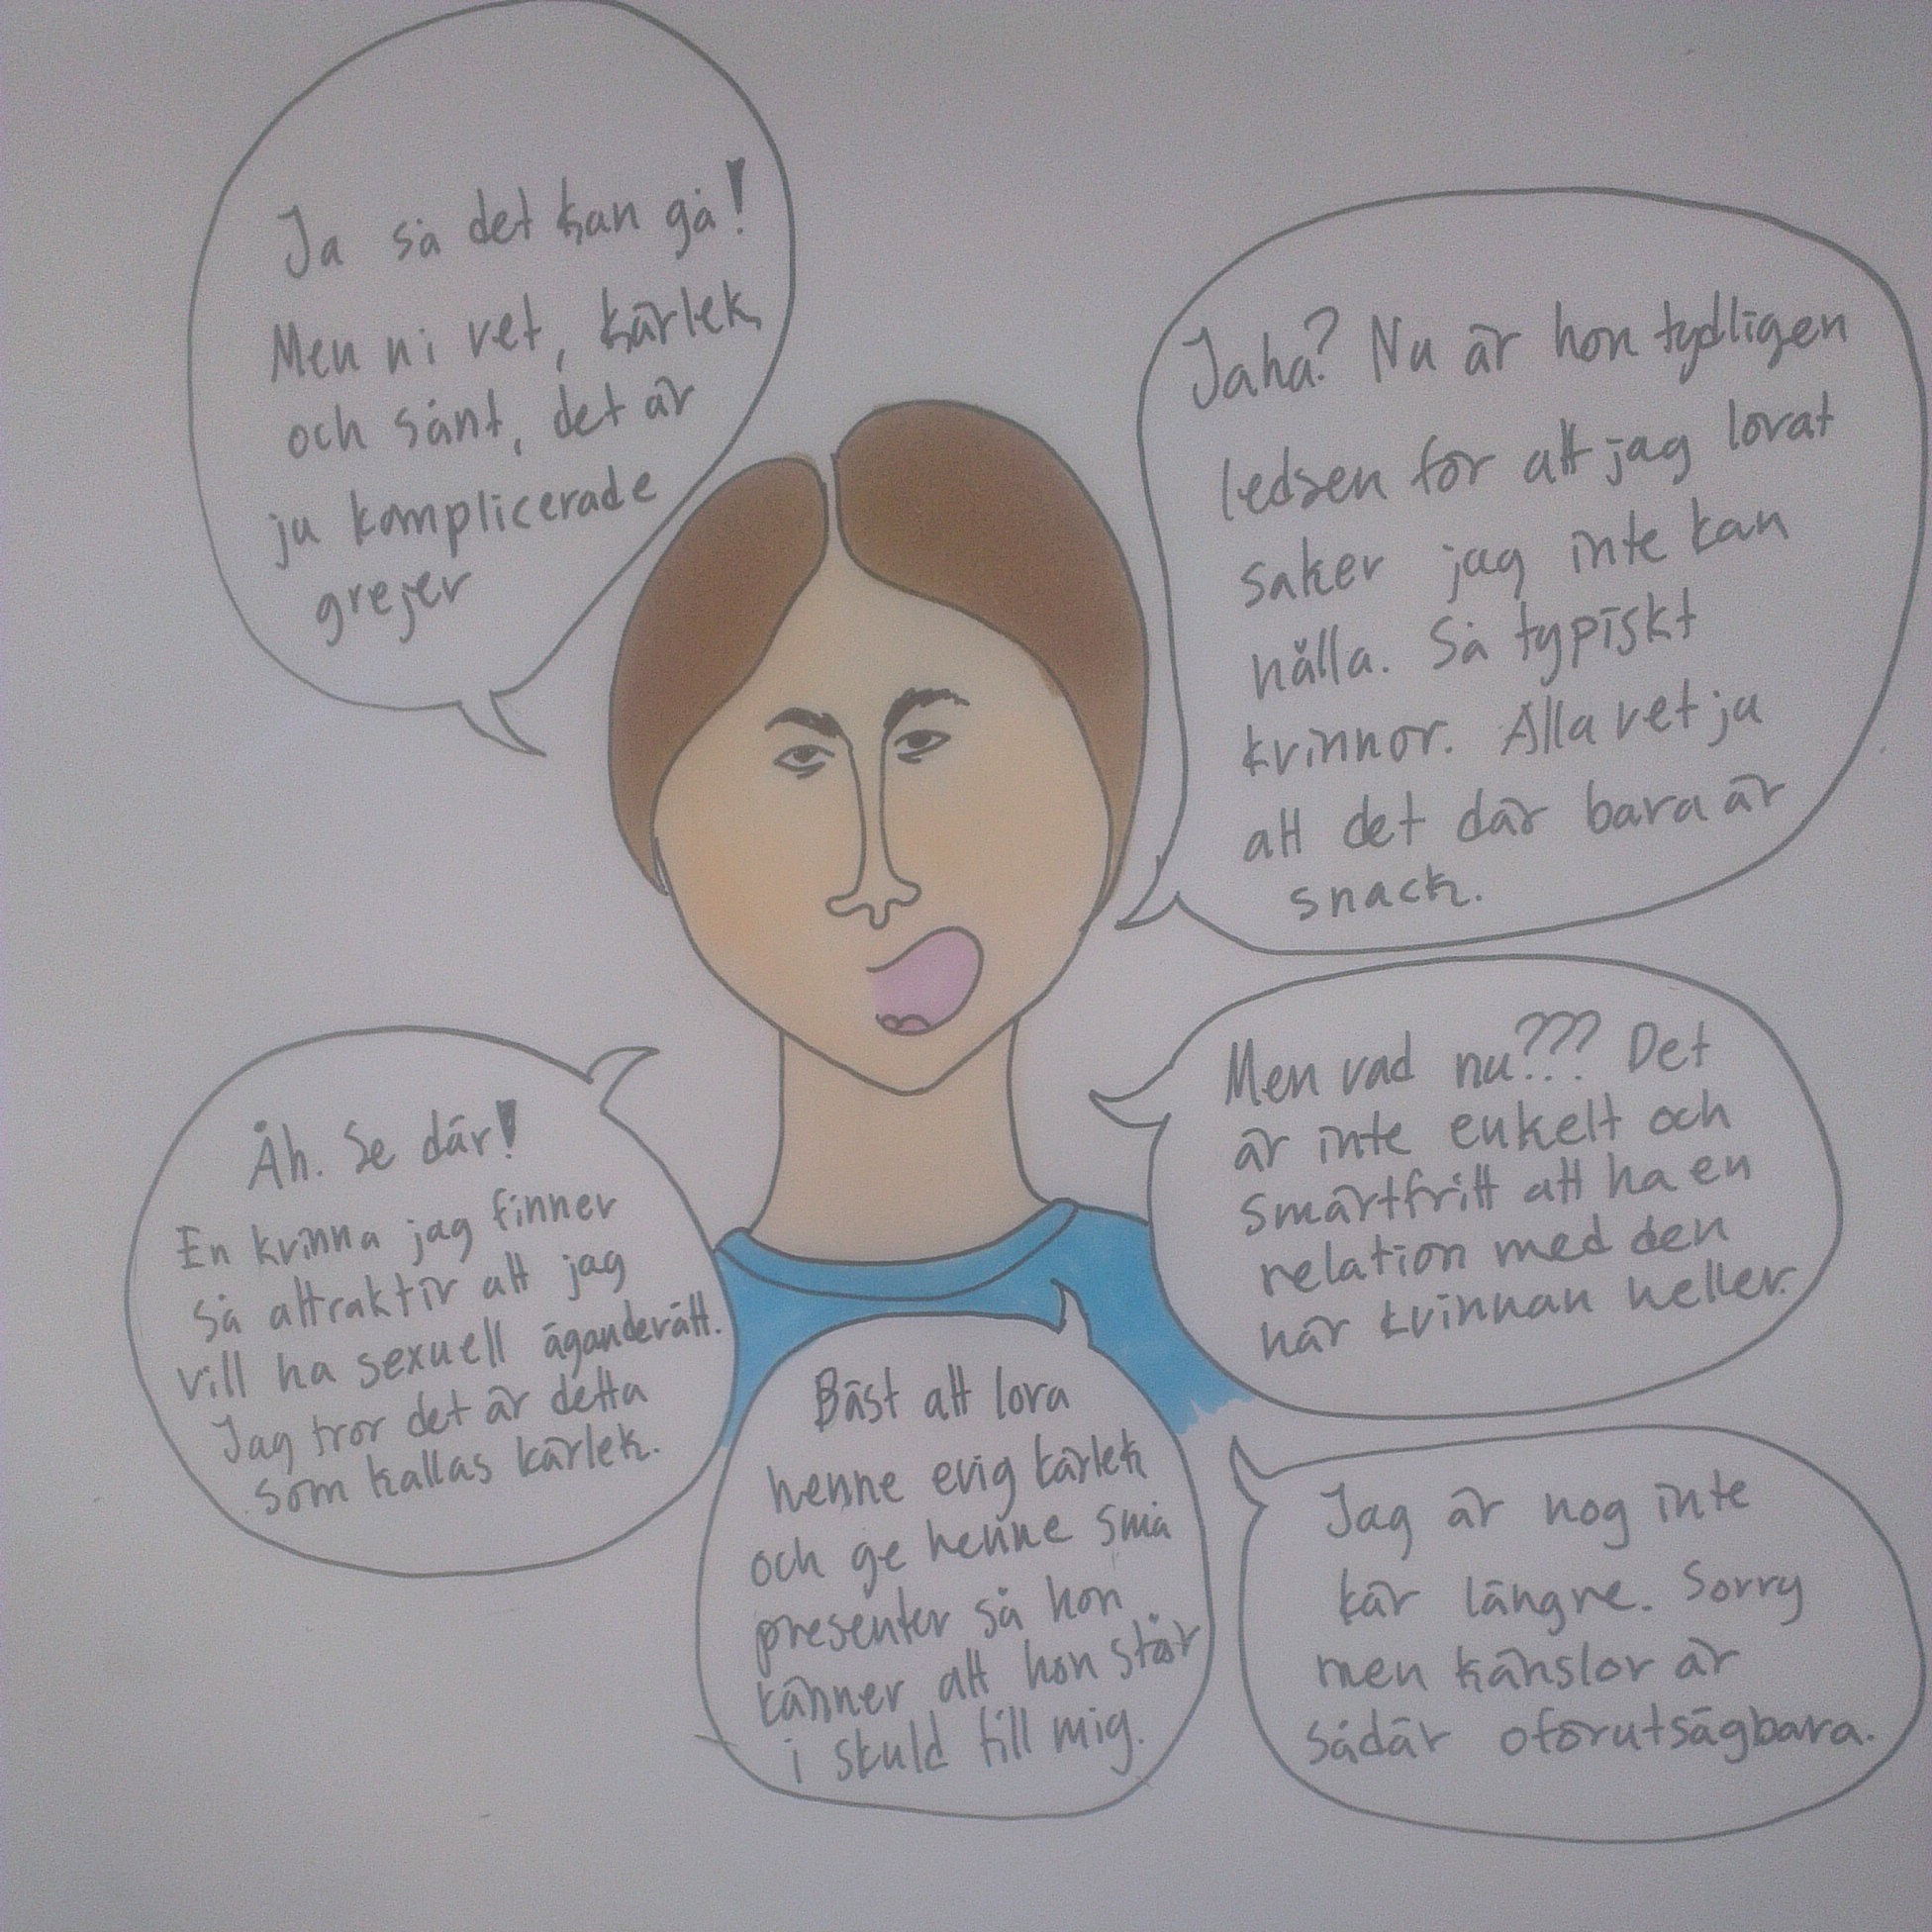 Ja så det kan gå!
Men ni vet, kärlek
och sånt, det är
ju komplicerade
grejer
Jaha? Nu är hon tydligen
ledsen för att jag lovat
saker jag inte kan
hålla. Så typiskt
kvinnor. Alla vet ju
att det där bara är
snack.
Men vad nu??? Det
är inte enkelt och
smärtfritt att ha en
relation med den
här kvinnan heller.
Åh. Se där!
En kvinna jag finner
så attraktiv att jag
vill ha sexuell äganderätt.
Jag tror det är detta
som kallas kärlek.
Bäst att lova
henne evig kärlek
och ge henne små
presenter så hon
känner att hon står
i skuld till mig.
Jag är nog inte
kär längre. Sorry
men känslor är
sådär oförutsägbara.